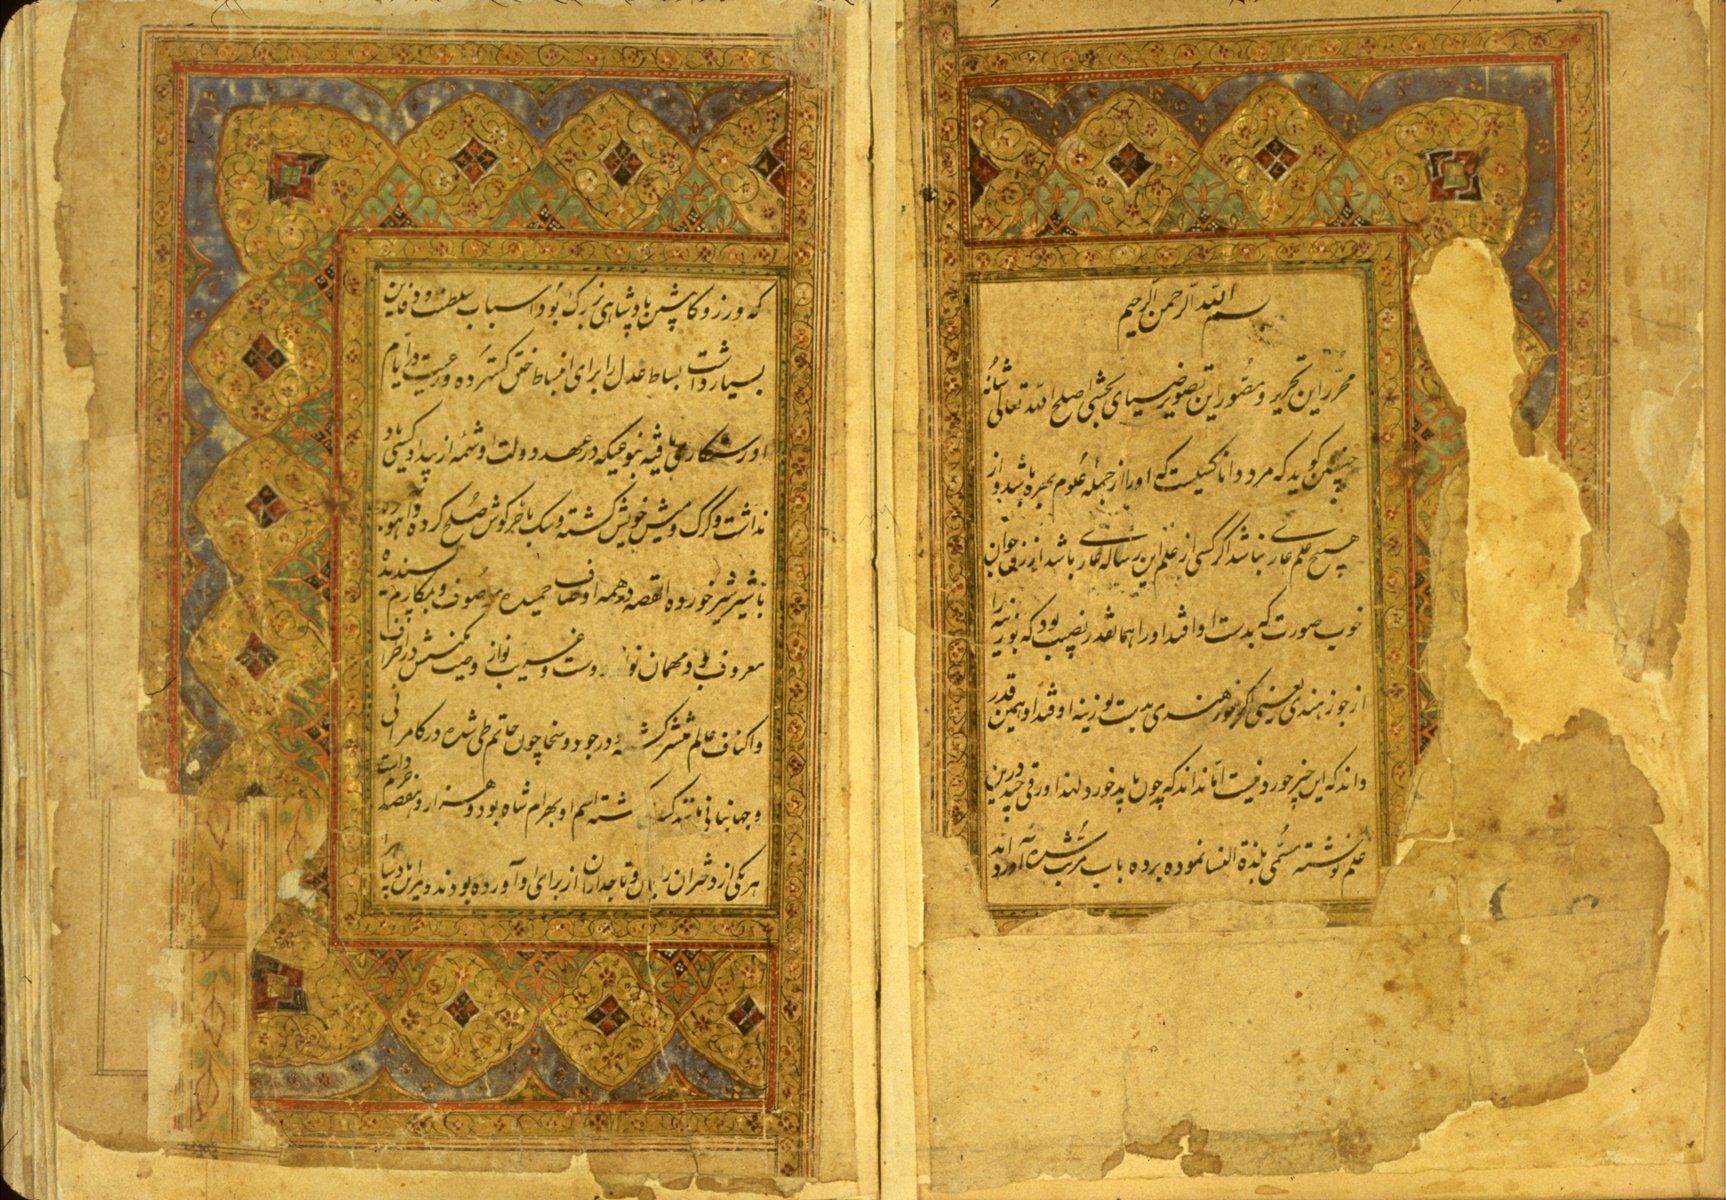 بسم الله الرحمن الرحیم
محرر این تحریر و مصور این تصویر ضیای نخشبی اصلح الله تعالی شانه
چنین گوید که مرد دانا کسیست که او را از جمله علوم بهره باشد و از
هیچ علم عاری نباشد اگر کسی از علم این رساله عاری باشد از زنی جوان
خوب صورت که بدست او افتد او را همانقدر نصیب بود که بوزینه را
از جوز هندی یعنی اگر جوز هندی بدست بوزینه افتد او همین قدر
داند که این چیز خوردنیست اما نداند که چون باید خورد لهذا ورقی چند درین
علم نوشته مسمی بلذة النسا نموده برده باب مرتب شده آورده اند
که در روزگار پیشین پادشاهی بزرگ بود و اسباب سلطنت و دفاین
بسیار داشت بساط عدل را برای انبساط خلق گسترده و رعیت در ایام
او رستگاری یافته بنوعیکه در عهد دولت او شمه از بیداد کسی یاد
نداشت و گرگ و میش خویش گشته و سگ با خرگوش صلح کرده و آهو بره
با شیر شیر خورده القصه بهمه اوصاف حمیده موصوف و بمکارم پسندیده
معروف و مهمان نواز دوست و غریب نوازی وصیت کرمش در اطراف
و اکناف عالم منتشر گشته و در جود و سخا چون حاتم طی شده در کامرانی
و جهانبانی مانند گشته اسم او بهرام شاه بود و هزار و نهصد حرم داشت
هر یکی از دختران رایان و تاجداران از برای او آورده بودند و میر این پادشاه را